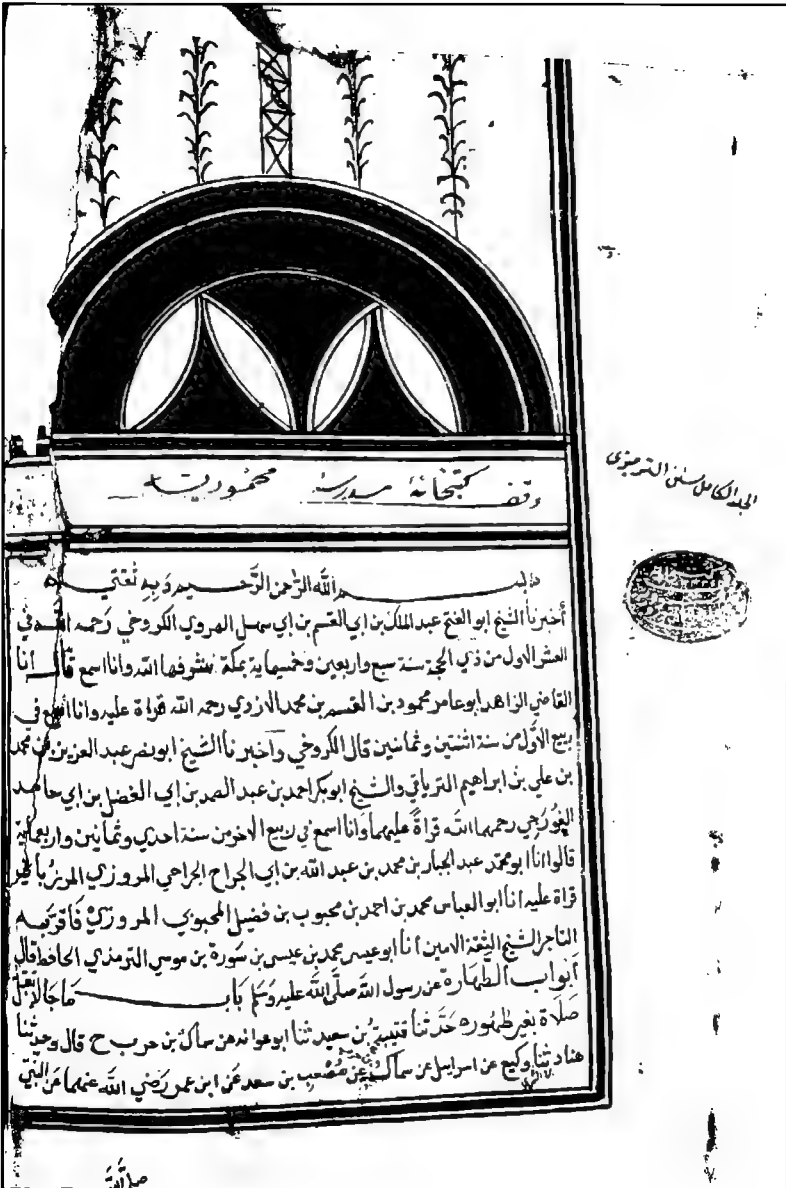 وقف كتبخانهٔ مدرسهٔ محموديه
المجلد الكامل سنن الترمذي
بسم الله الرحمن الرحيم وبه ثقتي
أخبرنا الشيخ ابو الفتح عبد الملك بن ابي القسم بن ابي سهل الهروي الكروخي رحمه الله في
العشر الاول من ذي الحجة سنة سبع واربعين وخمسماية بمكة شرفها الله وانا اسمع قال انا
القاضي الزاهد ابو عامر محمود بن القسم بن محمد الازدي رحمه الله قراة عليه وانا أسمع في
ربيع الأول من سنة اثنتين وثمانين قال الكروخي وأخبرنا الشيخ ابو نصر عبد العزيز بن محمد
بن علي بن ابراهيم الترياقي والشيخ ابو بكر احمد بن عبد الصمد بن ابي الفضل بن ابي حامد
الغورجي رحمهما الله قراةً عليهما وَانا اسمع في ربيع الاخر من سنة احدي وثمانين واربعماية
قالوا انا ابو محمد عبد الجبار بن محمد بن عبد الله بن ابي الجراح الجراحي المروزي المرزباني
قراة عليه انا ابو العباس محمد بن احمد بن محبوب بن فضيل المحبوبي المروزي فأقر به
التاجر الشيخ الثقة الامين انا ابو عيسى محمد بن عيسى بن سَورة بن موسي الترمذي الحافظ قال
أبواب الطهارة عن رسول الله صلَّى الله عليه وَسَلم بَاب مَا جَا لا تقبل
صَلَاة بغير طهور حَدَّثنا قتيبة بُن سعيد ثنا ابو عوانه عن سماك بن حرب ح قال وحدثنا
هناد ثنا وكيع عن اسرايل عن سماك عن مُصْعَبِ بن سعد عَن ابن عمر رَضي الله عنهما عَن النَّبي
صلَّى اللَّه